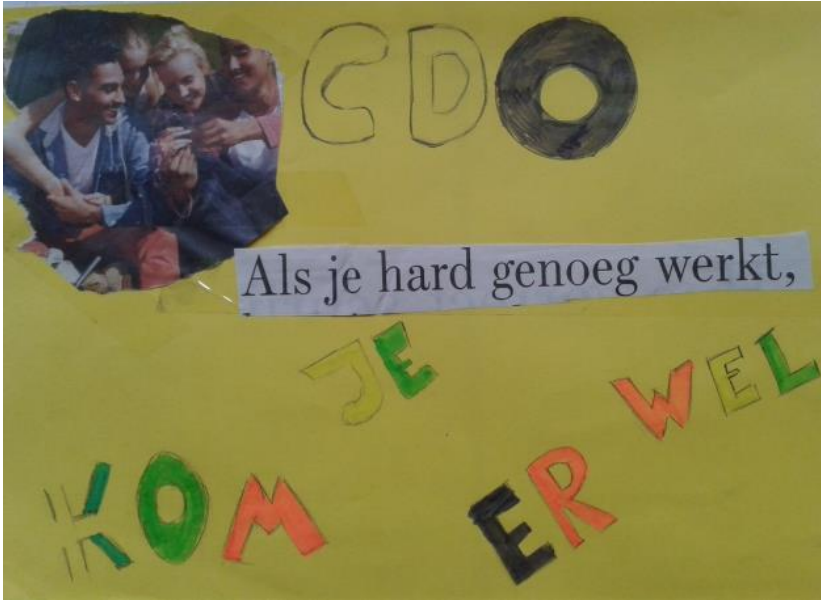 CDO
Als je hard genoeg werkt,
KOM JE ER WEL